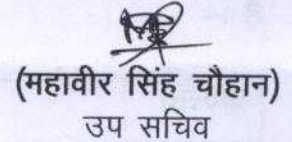 (महावीर सिंह चौहान)
उप सचिव